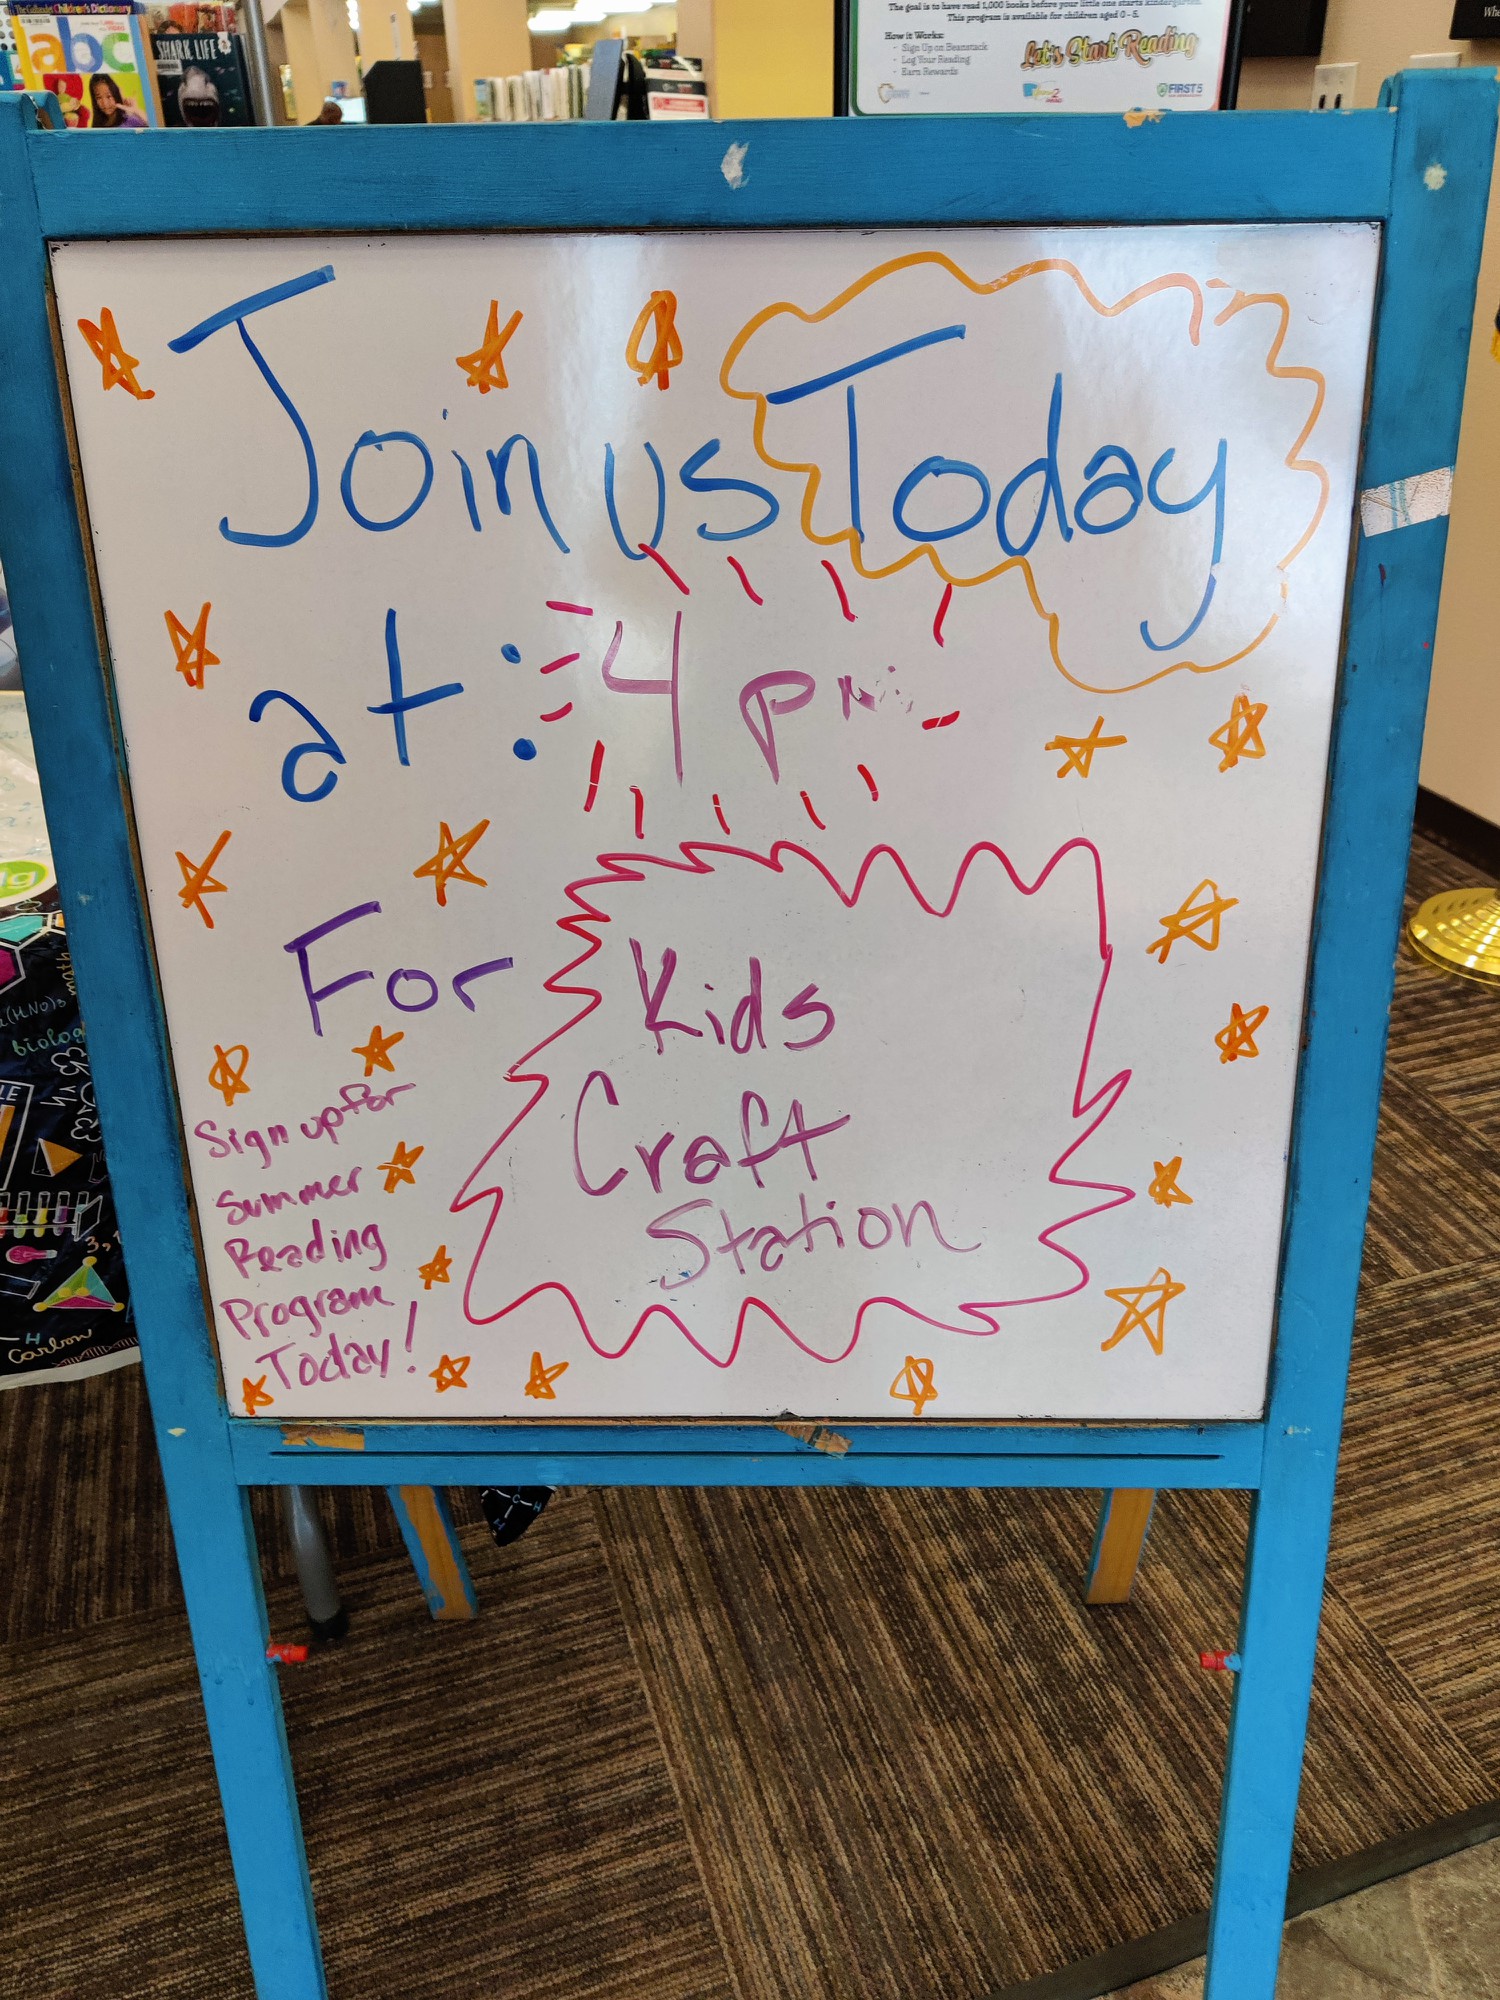 The Gallaudet Children's Dictionary
abc
SHARK LIFE
The goal is to have read 1,000 books before your little one starts kindergarten.
This program is available for children aged 0 - 5.
How it Works:
- Sign Up on Beanstack
- Log Your Reading
- Earn Rewards
Let's Start Reading
FIRST 5
Join us Today
at : 4 pm
For
Kids
Craft
Station
Sign up for
Summer
Reading
Program
Today!
math
biology
3,1
H
Carbon